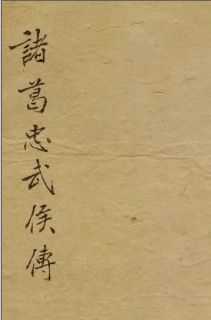 諸葛忠武侯傳